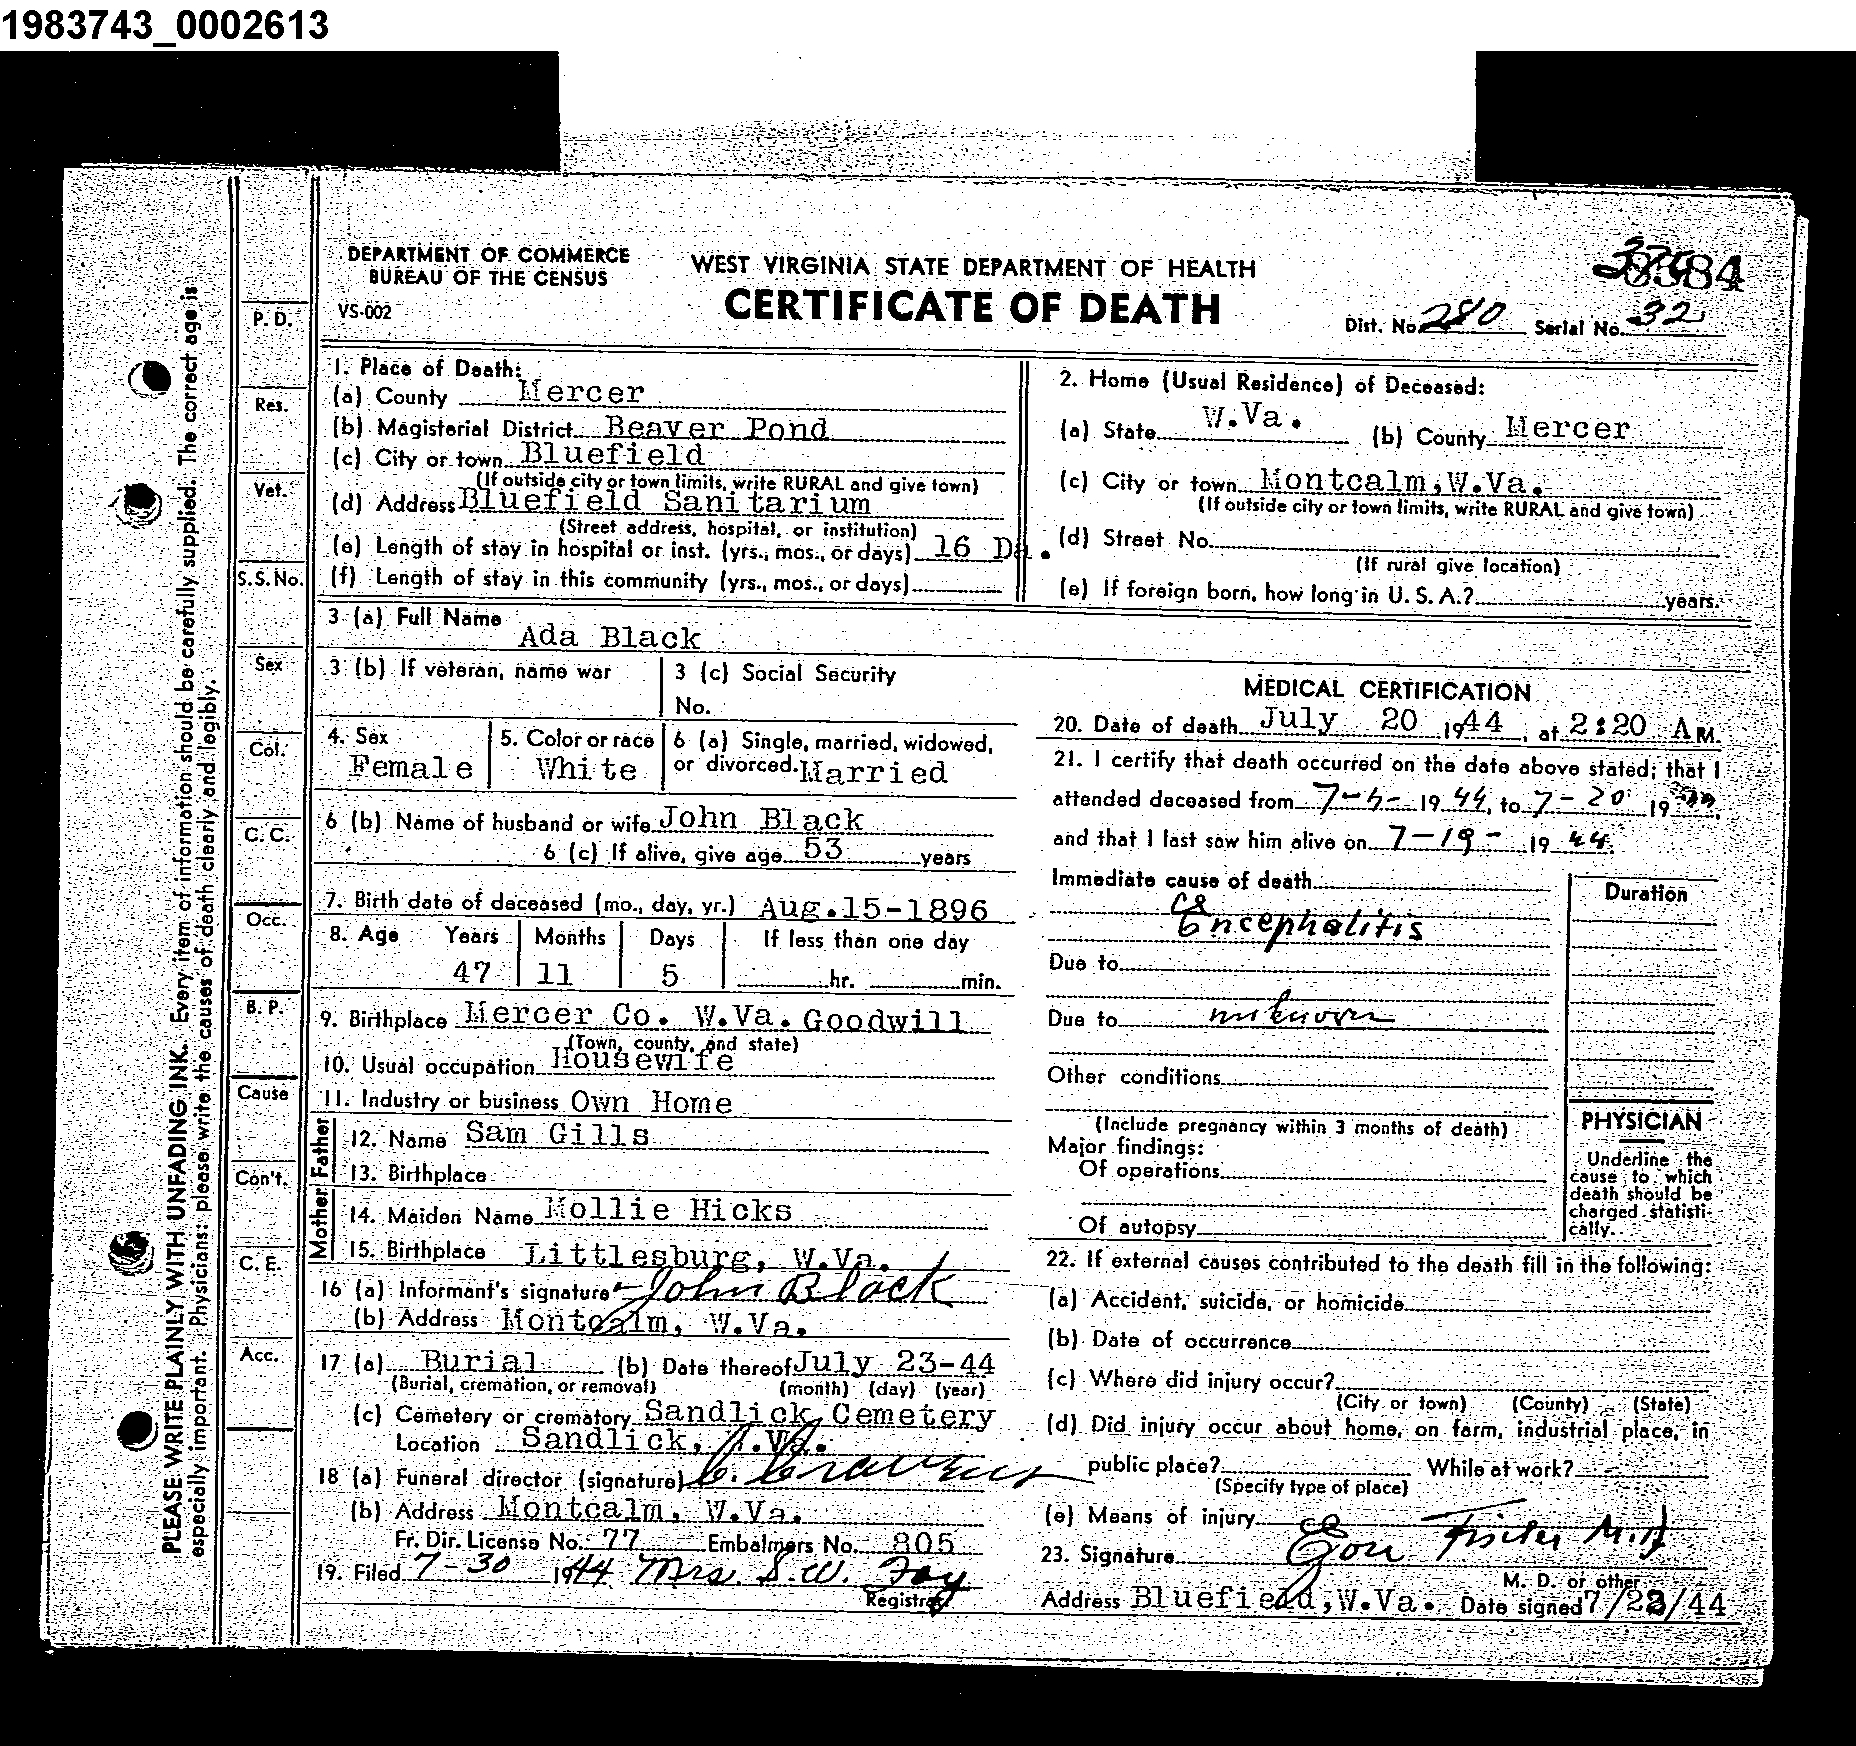 1983743_0002613
DEPARTMENT OF COMMERCE
BUREAU OF THE CENSUS
VS-002
WEST VIRGINIA STATE DEPARTMENT OF HEALTH
CERTIFICATE OF DEATH
Dist. No. 280 Serial No. 32
1. Place of Death:
(a) County Mercer
(b) Magisterial District Beaver Pond
(c) City or town Bluefield
(If outside city or town limits, write RURAL and give town)
(d) Address Bluefield Sanitarium
(Street address, hospital, or institution)
(e) Length of stay in hospital or inst. (yrs., mos., or days) 16 Da.
(f) Length of stay in this community (yrs., mos., or days)
2. Home (Usual Residence) of Deceased:
(a) State W.Va. (b) County Mercer
(c) City or town Montcalm, W.Va.
(If outside city or town limits, write RURAL and give town)
(d) Street No.
(If rural give location)
(e) If foreign born, how long in U. S. A.? years.
3 (a) Full Name
Ada Black
3 (b) If veteran, name war
3 (c) Social Security
No.
4. Sex
Female
5. Color or race
White
6 (a) Single, married, widowed,
or divorced. Married
6 (b) Name of husband or wife John Black
6 (c) If alive, give age 53 years
7. Birth date of deceased (mo., day, yr.) Aug.15-1896
8. Age Years Months Days If less than one day
47 11 5 hr. min.
9. Birthplace Mercer Co. W.Va. Goodwill
(Town, county, and state)
10. Usual occupation Housewife
11. Industry or business Own Home
Father
12. Name Sam Gills
13. Birthplace
Mother
14. Maiden Name Mollie Hicks
15. Birthplace Littlesburg, W.Va.
16 (a) Informant's signature John Black
(b) Address Montcalm, W.Va.
17 (a) Burial (b) Date thereof July 23-44
(Burial, cremation, or removal) (month) (day) (year)
(c) Cemetery or crematory Sandlick Cemetery
Location Sandlick, W.Va.
18 (a) Funeral director (signature)
(b) Address Montcalm, W.Va.
Fr. Dir. License No. 77 Embalmers No. 805
19. Filed 7-30 1944 Mrs. S. W. Foy
Registrar
MEDICAL CERTIFICATION
20. Date of death July 20 1944, at 2:20 A M.
21. I certify that death occurred on the date above stated; that I
attended deceased from 7-5- 1944, to 7-20 1944,
and that I last saw him alive on 7-19- 1944.
Immediate cause of death
Encephalitis
Due to
Due to unknown
Other conditions
(Include pregnancy within 3 months of death)
Major findings:
Of operations
Of autopsy
Duration
PHYSICIAN
Underline the
cause to which
death should be
charged statisti-
cally.
22. If external causes contributed to the death fill in the following:
(a) Accident, suicide, or homicide
(b) Date of occurrence
(c) Where did injury occur?
(City or town) (County) (State)
(d) Did injury occur about home, on farm, industrial place, in
public place? While at work?
(Specify type of place)
(e) Means of injury
23. Signature M.D.
M. D. or other
Address Bluefield, W.Va. Date signed 7/22/44
P. D.
Res.
Vet.
S.S. No.
Sex
Col.
C. C.
Occ.
B. P.
Cause
Con't.
C. E.
Acc.
PLEASE WRITE PLAINLY WITH UNFADING INK. Every item of information should be carefully supplied. The correct age is
especially important. Physicians: please write the causes of death clearly and legibly.